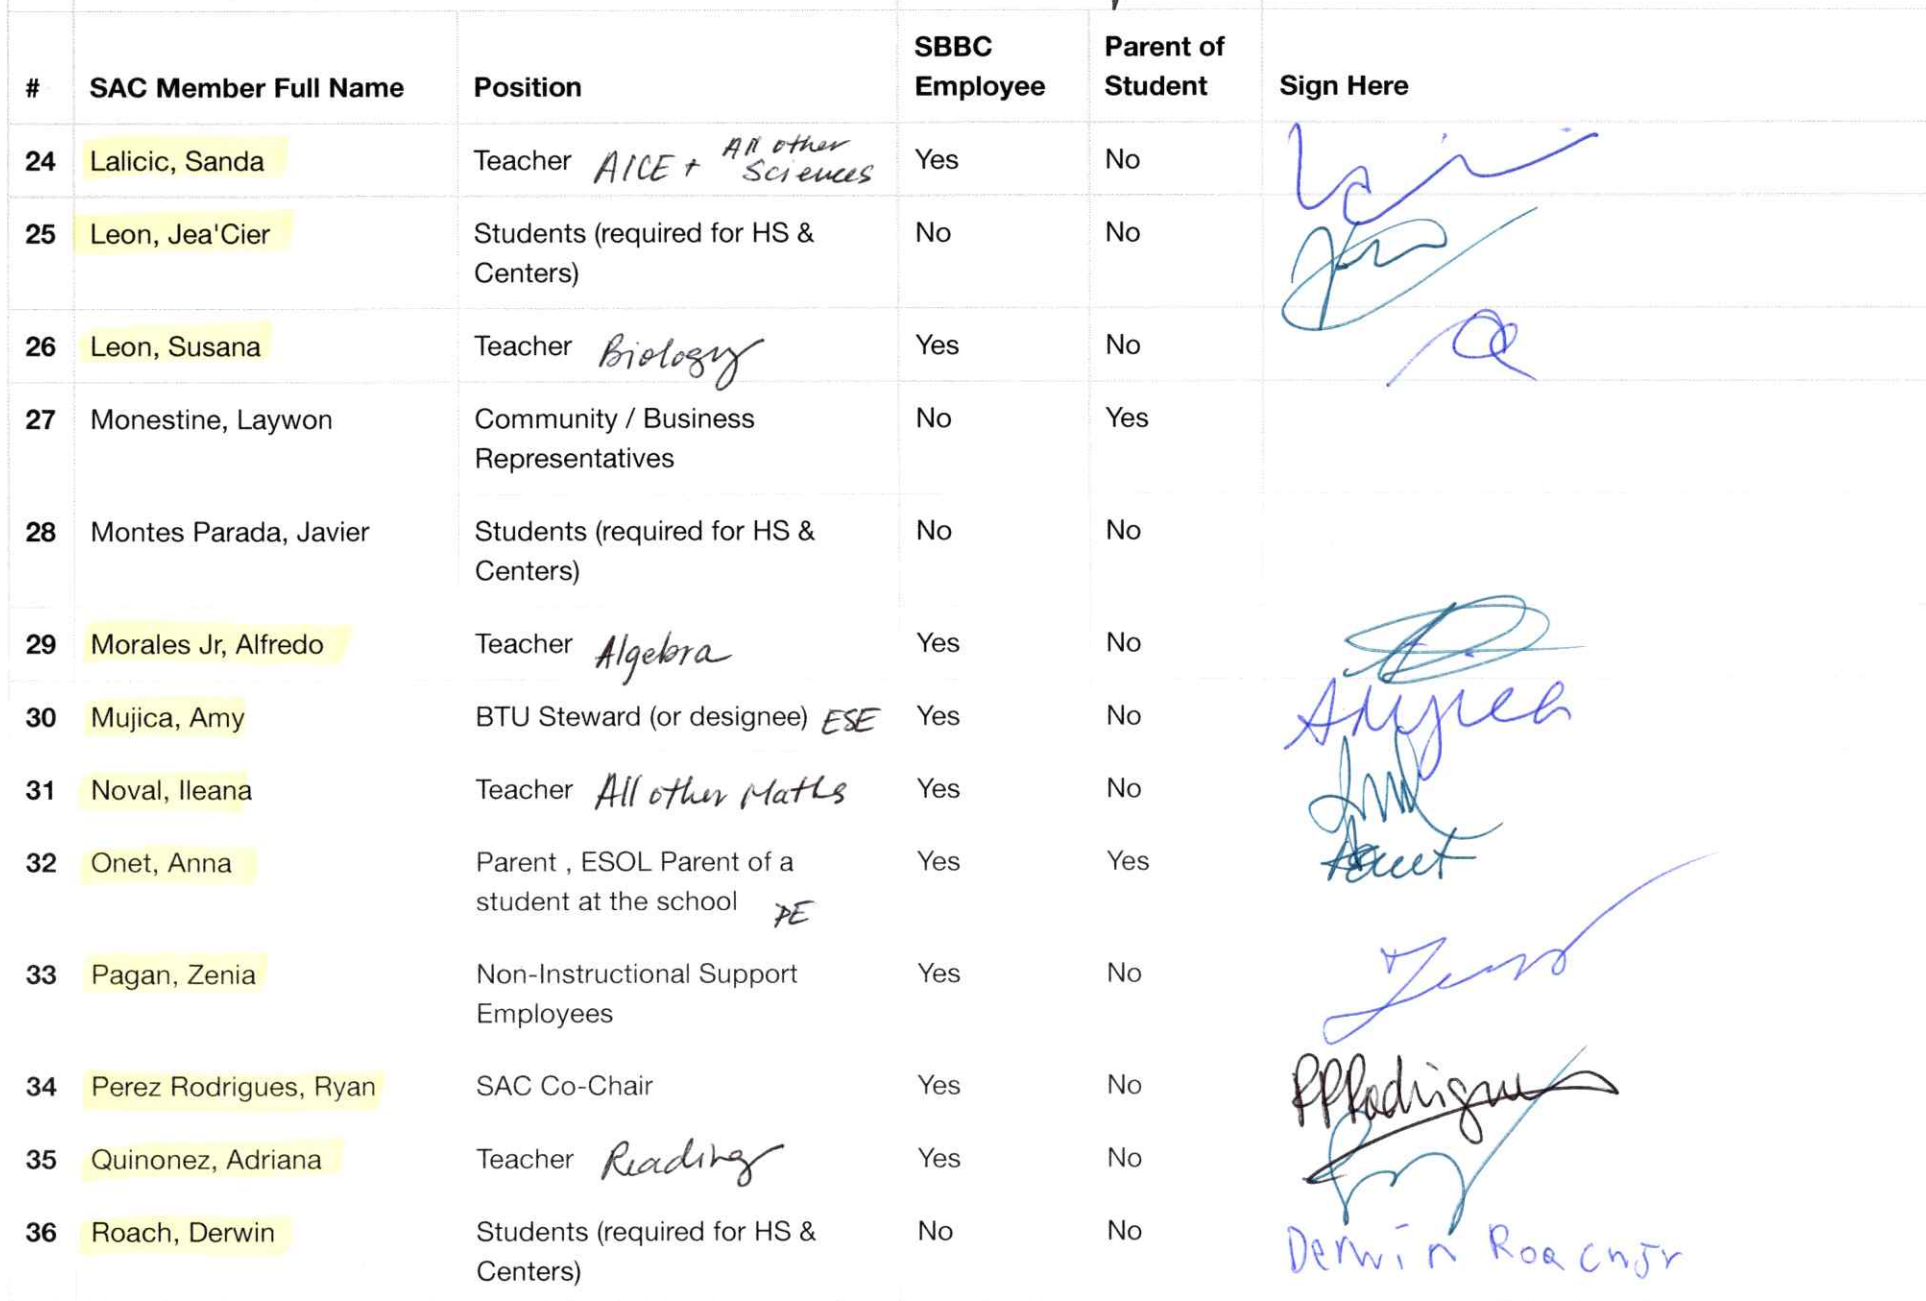 # SAC Member Full Name Position SBBC Employee Parent of Student Sign Here
24 Lalicic, Sanda Teacher AICE + All other Sciences Yes No
25 Leon, Jea'Cier Students (required for HS & Centers) No No
26 Leon, Susana Teacher Biology Yes No
27 Monestine, Laywon Community / Business Representatives No Yes
28 Montes Parada, Javier Students (required for HS & Centers) No No
29 Morales Jr, Alfredo Teacher Algebra Yes No
30 Mujica, Amy BTU Steward (or designee) ESE Yes No
31 Noval, Ileana Teacher All other Maths Yes No
32 Onet, Anna Parent , ESOL Parent of a student at the school PE Yes Yes
33 Pagan, Zenia Non-Instructional Support Employees Yes No
34 Perez Rodrigues, Ryan SAC Co-Chair Yes No
35 Quinonez, Adriana Teacher Reading Yes No
36 Roach, Derwin Students (required for HS & Centers) No No Derwin Roach Jr